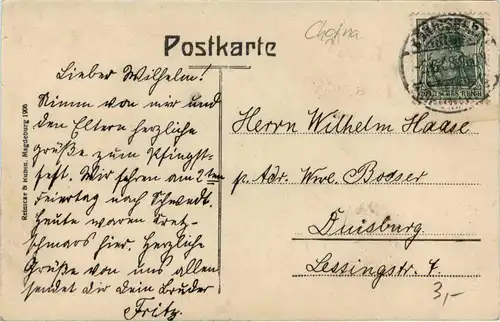 Choina
Postkarte
DEUTSCHES REICH
Lieber Wilhelm!
Nimm von mir und
den Eltern herzliche
grüße zum Pfingst-
fest. Wir fahren am 2ten
Feiertag nach Schwedt.
Heute waren Kretz-
schmars hier. Herzliche
Grüße von uns allen
sendet dir dein Bruder
Fritz.
Herrn Wilhelm Haase
p. Adr. Wwe. Boeser
Duisburg
Lessingstr. 7.
3,-
Reinicke & Rubin, Magdeburg 1906